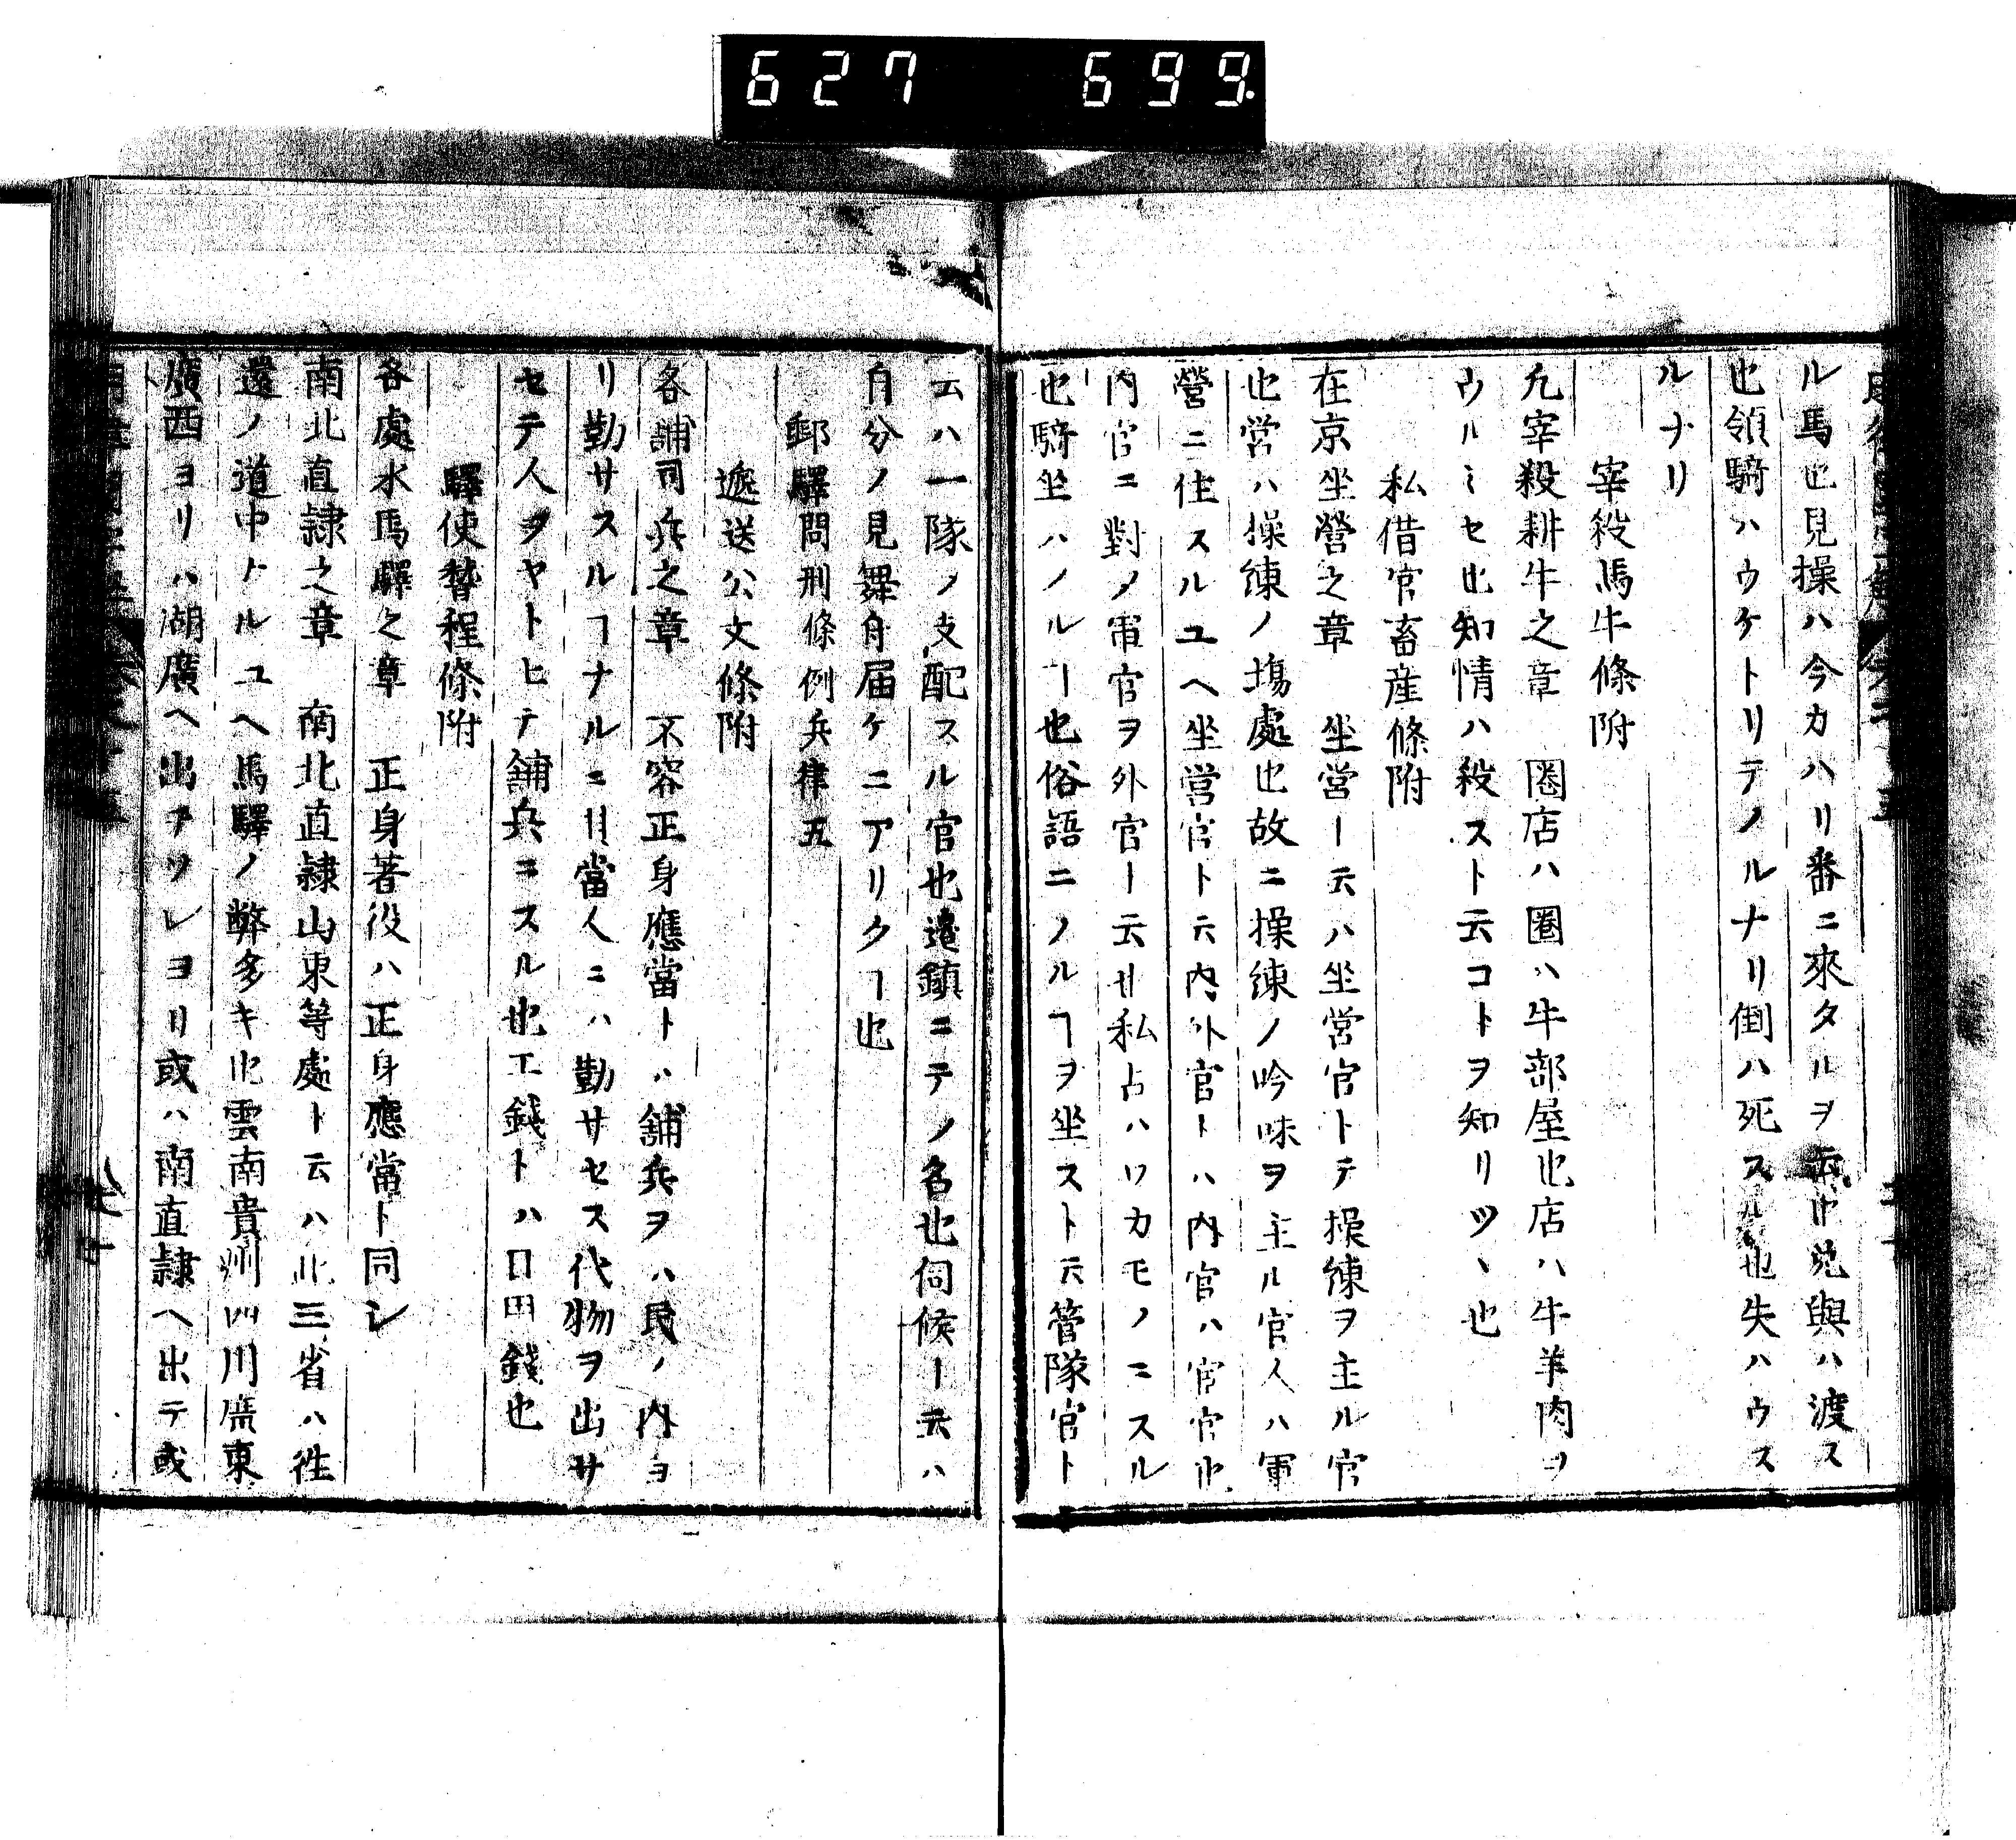 627 699
ル馬也見操ハ今カハリ番ニ來タルヲ云也兌與ハ渡ス
也領騎ハウケトリテノルナリ倒ハ死スル也失ハウス
ルナリ
宰殺馬牛條附
凡宰殺耕牛之章 圏店ハ圏ハ牛部屋也店ハ牛羊肉ヲ
ウルミセ也知情ハ殺スト云コトヲ知リツヽ也
私借官畜産條附
在京坐營之章 坐営ート云ハ坐営官トテ操練ヲ主ル官
也営ハ操練ノ塲處也故ニ操練ノ吟味ヲ主ル官人ハ軍
營ニ住スルユヘ坐営官ト云内外官トハ内官ハ宦官也
内官ニ對メ軍官ヲ外官ート云ナリ私占ハワカモノニスル
也騎坐ハノルヿ也俗語ニノルヿヲ坐スト云管隊官ト
云ハ一隊ノ支配スル官也邉鎮ニテノ名也伺候ート云ハ
自分ノ見舞舟届ケニアリクヿ也
郵驛問刑條例兵律五
遞送公文條附
各舖司兵之章 不容正身應當トハ舖兵ヲハ民ノ内ヨ
リ勤サスルヿナルニ其當人ニハ勤サセス代物ヲ出サ
セテ人ヲヤトヒテ舖兵ニスル也工錢トハ日用錢也
驛使稽程條附
各處水馬驛之章 正身著役ハ正身應當ト同シ
南北直隷之章 南北直隷山東等處ト云ハ此三省ハ徃
還ノ道中ナルユヘ馬驛ノ弊多キ也雲南貴州四川廣東
廣西ヨリハ湖廣ヘ出ヲソレヨリ或ハ南直隷ヘ出テ或